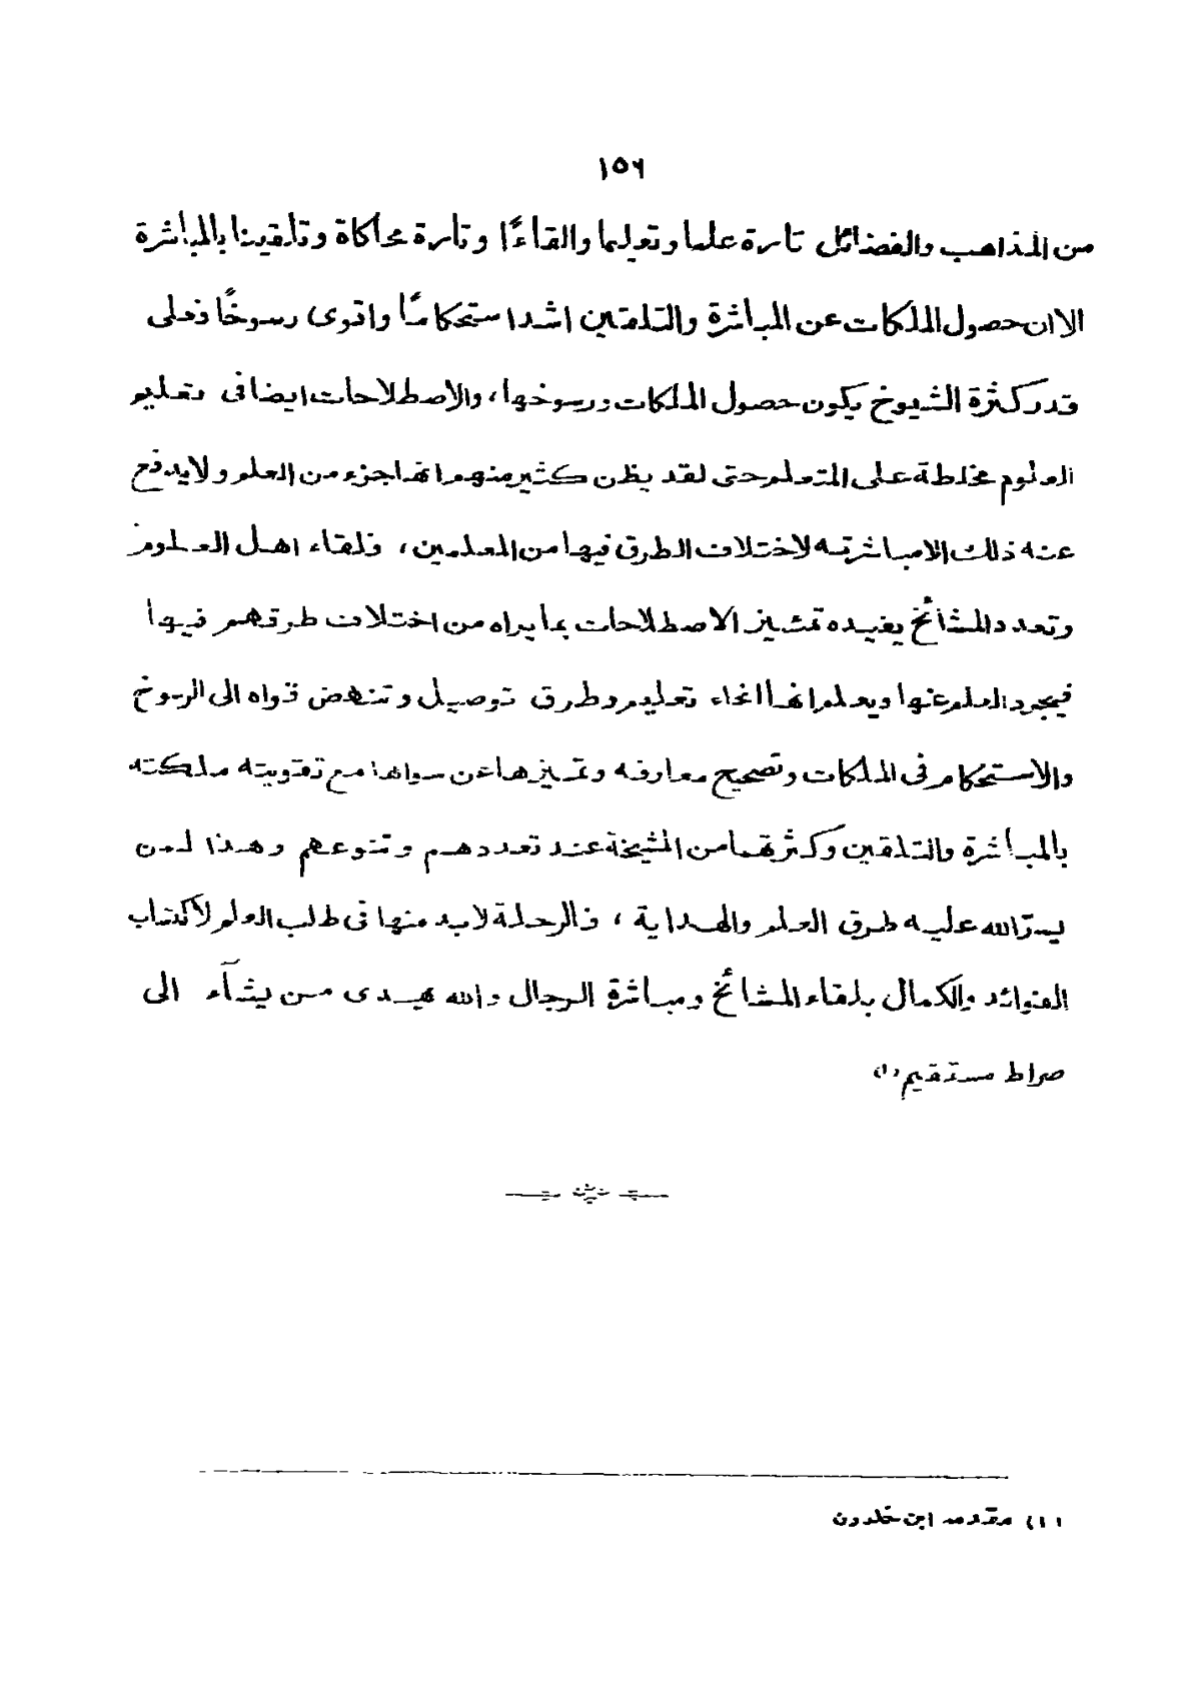 ١٥٦
من المذاهب والفضائل تارة علما وتعليما والقاءًا وتارة محاكاة وتلقينا بالمباشرة
الا ان حصول الملكات عن المباشرة والتلقين اشد استحكامًا واقوى رسوخًا فعلى
قدر كثرة الشيوخ يكون حصول الملكات ورسوخها، والاصطلاحات ايضا فى تعليم
العلوم مخلطة على المتعلم حتى لقد يظن كثير منهم انها جزء من العلم ولا يدفع
عنه ذلك الا مباشرته لاختلاف الطرق فيها من المعلمين، فلقاء اهل العلوم
وتعدد المشائخ يفيده تمييز الاصطلاحات بما يراه من اختلاف طرقهم فيها
فيجرد العلم عنها ويعلم انها انحاء تعليم وطرق توصيل وتنهض قواه الى الرسوخ
والاستحكام فى الملكات وتصحيح معارفه وتميزها عن سواها مع تقويته ملكته
بالمباشرة والتلقين وكثرتهما من المشيخة عند تعددهم وتنوعهم وهذا لمن
يسرّ الله عليه طرق العلم والهداية، فالرحلة لابد منها فى طلب العلم لاكتساب
الفوائد والكمال بلقاء المشائخ ومباشرة الرجال والله يهدى من يشآء الى
صراط مستقيم (١)
(١) مقدمه ابن خلدون